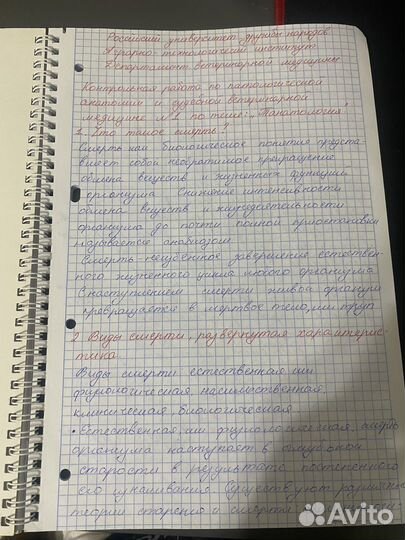 Российский университет дружбы народов
Аграрно-технологический институт
Департамент ветеринарной медицины
Контрольная работа по патологической
анатомии и судебной ветеринарной
медицине №1 по теме: „Танатология"
1. Что такое смерть?
Смерть как биологическое понятие представ
вляет собой необратимое прекращение
обмена веществ и жизненных функций
организма. Снижение интенсивности
обмена веществ и жизнедеятельности
организма до почти полной приостановки
называется анабиозом.
Смерть - неизбежное завершение естествен
ного жизненного цикла любого организма
С наступлением смерти живой организм
превращается в мертвое тело, или труп
2 Виды смерти, развернутая характерис-
тика
Виды смерти: естественная или
физиологическая, насильственная,
клиническая, биологическая
• Естественная, или физиологическая, смерть
организма наступает в глубокой
старости в результате постепенного
его изнашивания. Существуют различные
теории старения и смерти
Avito